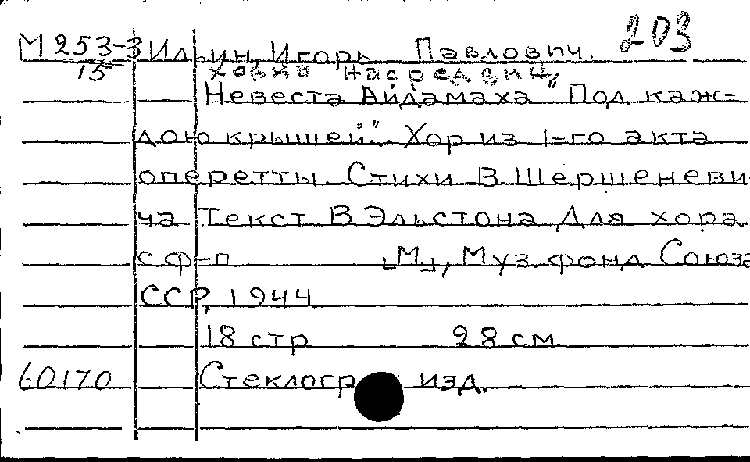 203
М 253-3 Ильин, Игорь Павлович.
15
Ходжа Насреддин,
Невеста Айдамаха "Под каж-
дою крышей". Хор из 1-го акта
оперетты Стихи В Шершеневи-
ча Текст В Эльстона Для хора
с ф-п [М], Муз. фонд Союза
ССР, 1944
18 стр 28 см
60170 Стеклогр изд.